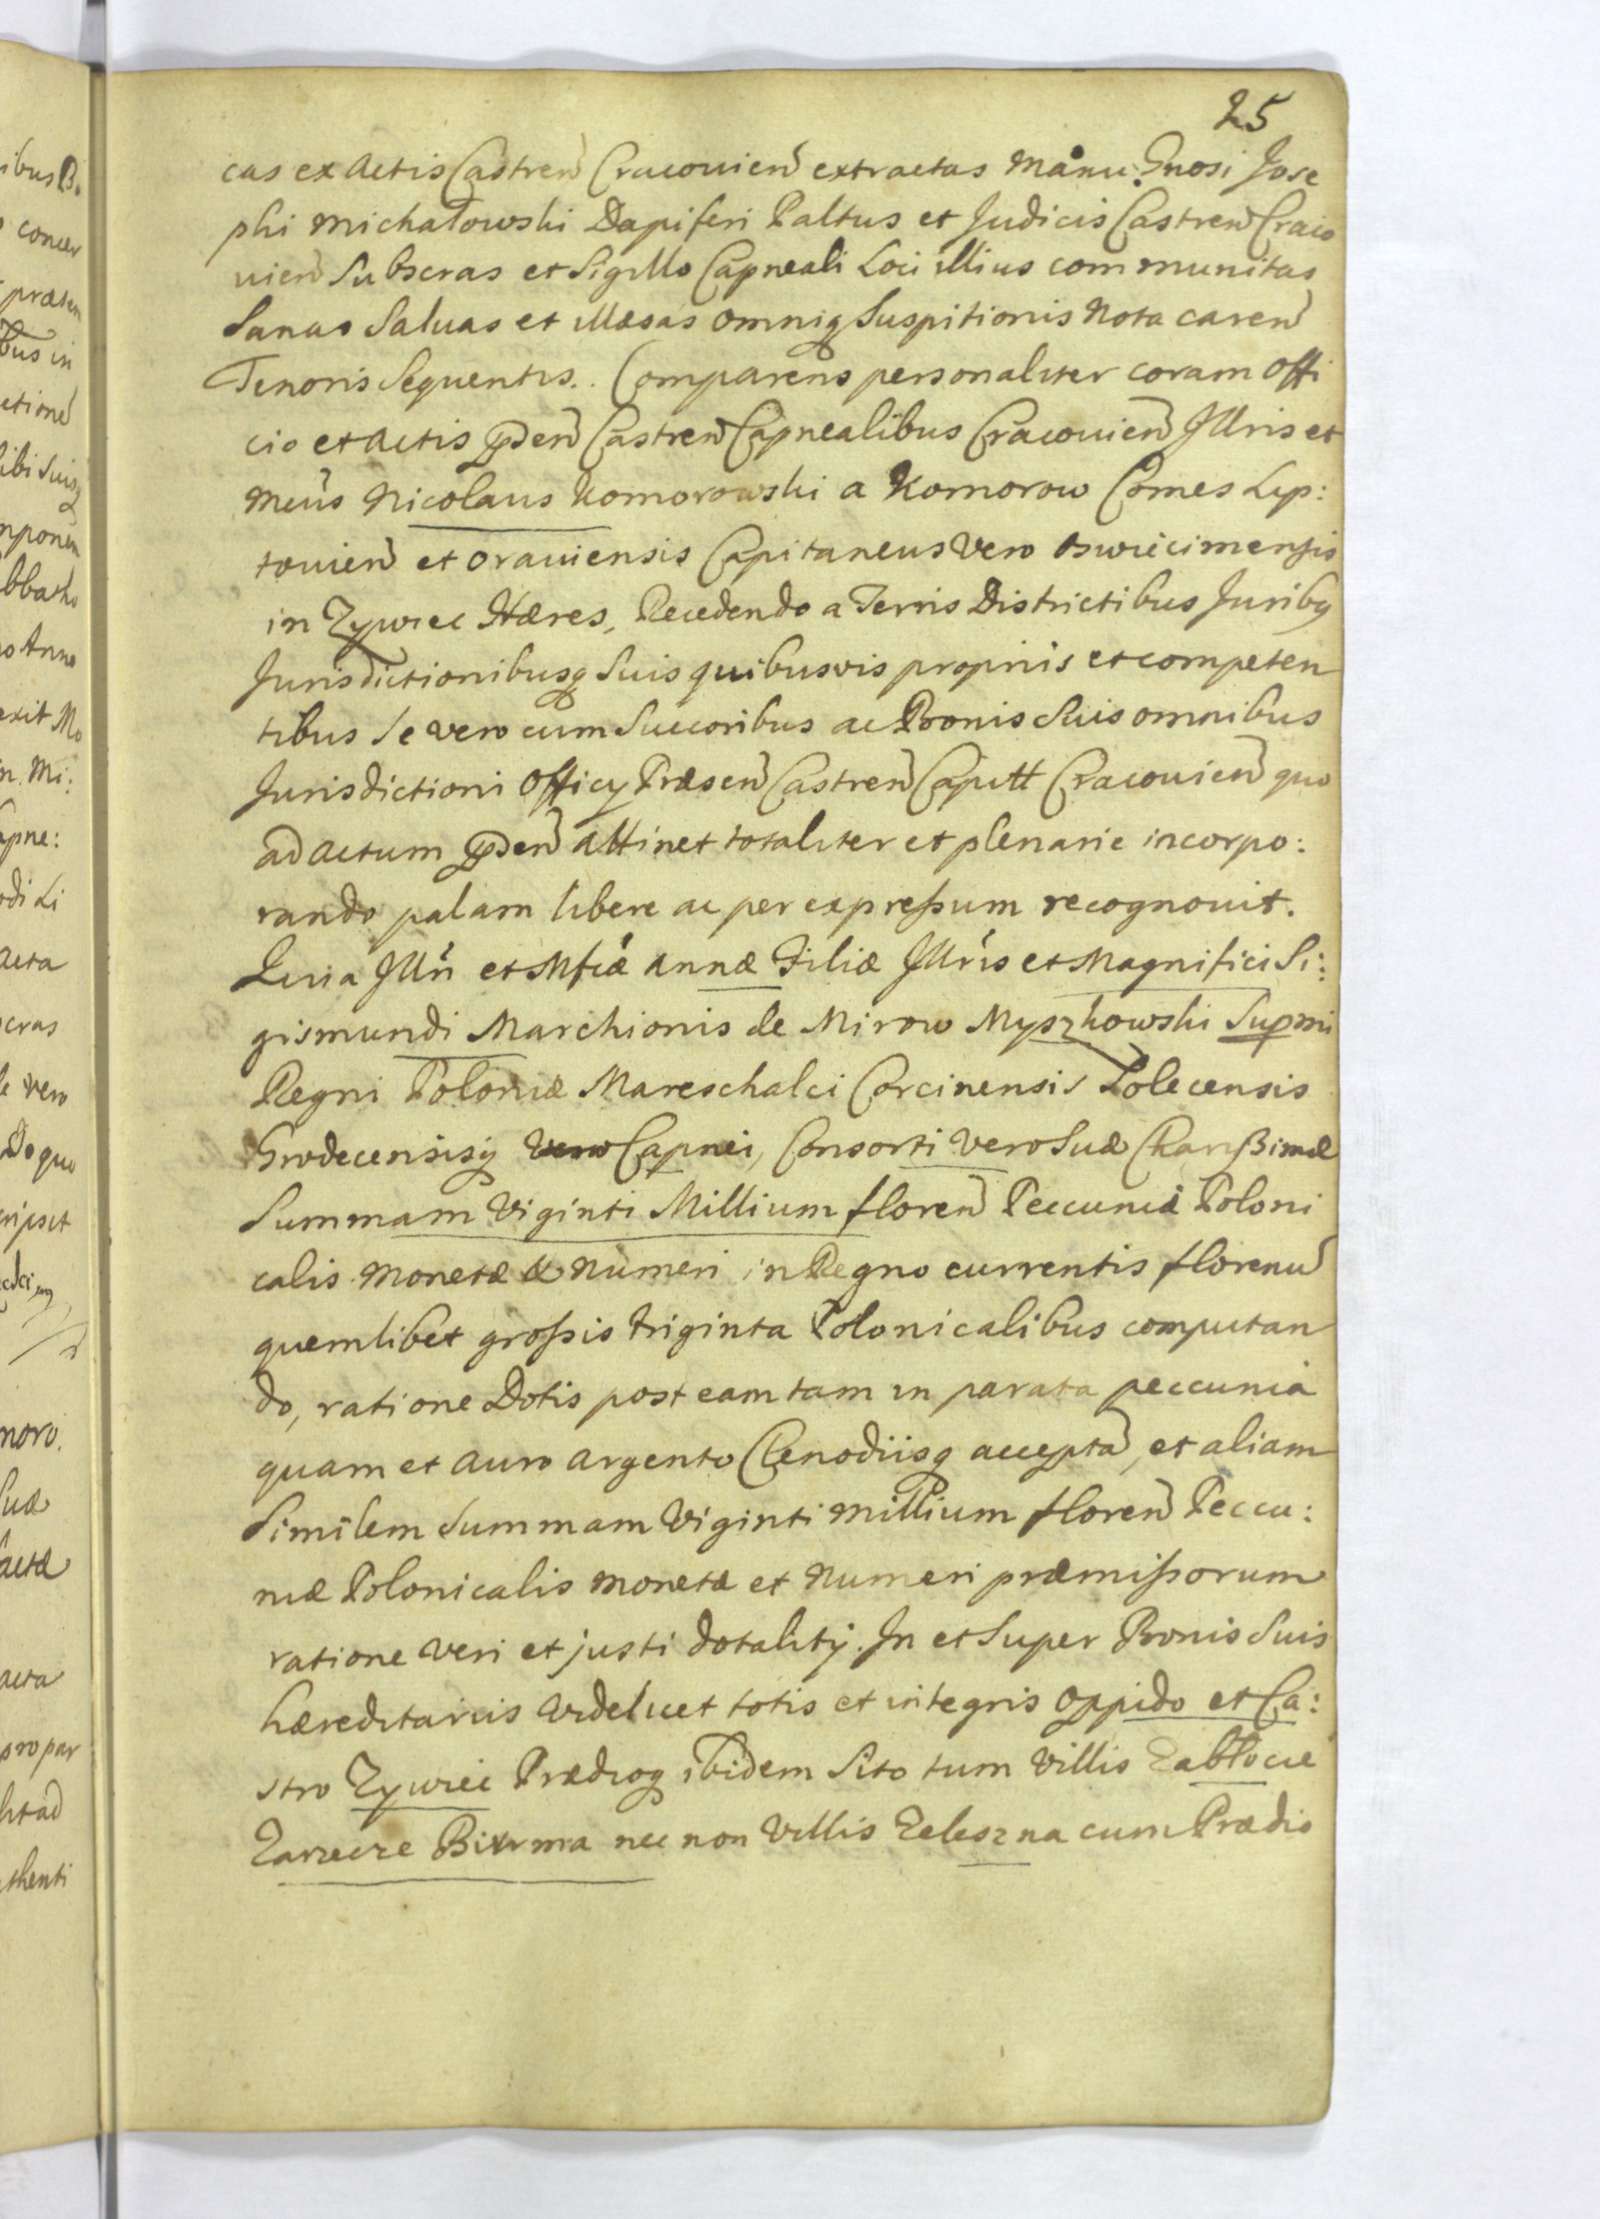 25
cas ex Actis Castren Cracouien extractas Manu Gnosi Jose
phi Michałowski Dapiferi Paltus et Judicis Castren Craco
uien Subscras et Sigillo Capneali Loci illius communitas
Sanas Saluas et illæsas omniq Suspitionis Nota caren
Tenoris Sequentis. Comparens personaliter coram Offi
cio et Actis pden Castren Capnealibus Cracouien Illris et
Mcus Nicolaus Komorowski a Komorow Comes Lip:
touien et Orauiensis Capitaneus Vero Oswiecimensis
in Zywiec Hæres, Recedendo a Terris Districtibus Juribq
Jurisdictionibusq Suis quibusvis proprijs et competen
tibus Se vero cum Succoribus ac Bonis Suis omnibus
Jurisdictioni Officy Præsen Castren Capitt Cracouien quo
ad actum pden attinet totaliter et plenarie incorpo:
rando palam libere ac per expressum recognouit.
Quia Illri et Mficæ Annæ Filiæ Illris et Magnifici Si:
gismundi Marchionis de Mirow Myszkowski Supmi
Regni Poloniæ Mareschalci Corcinensis Polecensis
Grodecensisq Capnei, Consorti vero Suæ Charissimæ
Summam Viginti Millium floren Peccuniæ Poloni
calis Monetæ & Numeri in Regno currentis florenu
quemlibet grossis triginta Polonicalibus computan
do, ratione Dotis post eam tam in parata peccunia
quam et Auro Argento Clenodiisq accepta, et aliam
Similem Summam Viginti Millium floren Peccu:
niæ Polonicalis Monetæ et Numeri præmissorum
ratione veri et justi dotalitij. In et Super Bonis Suis
hæreditariis videlicet totis et integris Oppido et Ca:
stro Zywiec Prædioq ibidem Sito tum Villis Zabłocie
Zarzecze nec non Villis Zeleszna cum Prædio